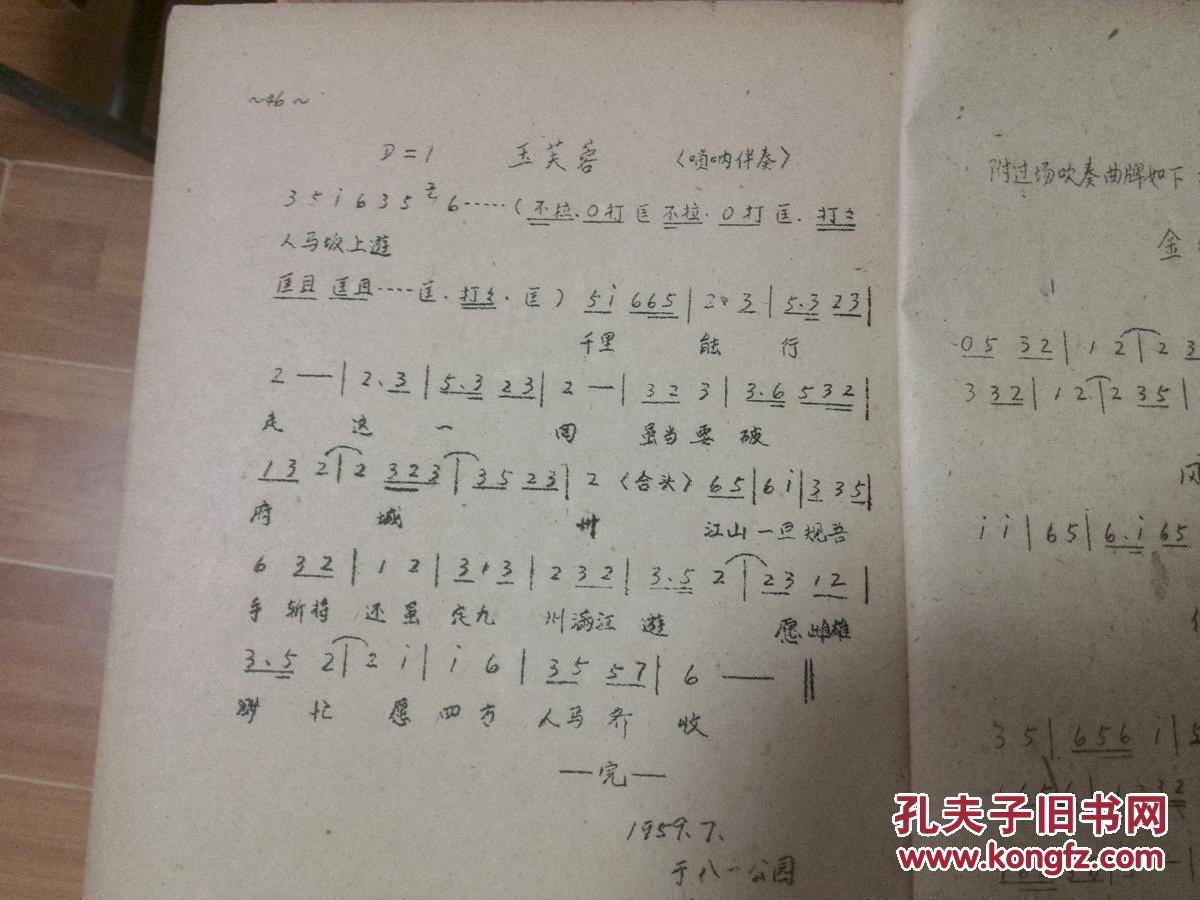 ~46~
D=1 玉芙蓉 〈唢呐伴奏〉
3 5 i 6 3 5 6……(不拉.0打匡不拉.0打匡.打
人马坂上遊
匡且 匡且……匡.打.匡) 5i 665|2·3|5.3 23|
千里 能 行
2 —|2.3|5.3 23|2 —|32 3|3.6 532|
走 这 一 囘 虽当要破
13 2|2 323|35 23|2 〈合头〉 65|6i|3 35|
府 城 州 江山一旦规吾
6 32|1 2|313|2 32|3.5 2|23 12|
手斩将 还虽定九 州满江 遊 愿雌雄
3.5 2|2 i|i 6|35 57|6 —‖
忙 愿四方 人马齐 收
—完—
1959.7.
于八一公园
附过场吹奏曲牌如下:
金
05 32|1 2|2 3
3 32|1 2|2 35|
i i|65|6.i 65
35|656 i|5
孔夫子旧书网
www.kongfz.com